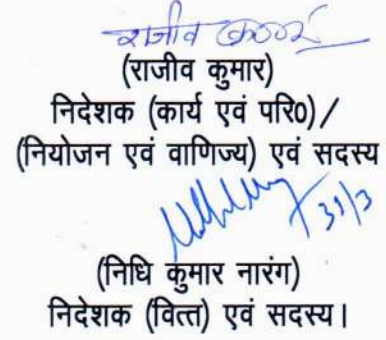 राजीव कुमार
(राजीव कुमार)
निदेशक (कार्य एवं परि0)/
(नियोजन एवं वाणिज्य) एवं सदस्य
31/3
(निधि कुमार नारंग)
निदेशक (वित्त) एवं सदस्य।